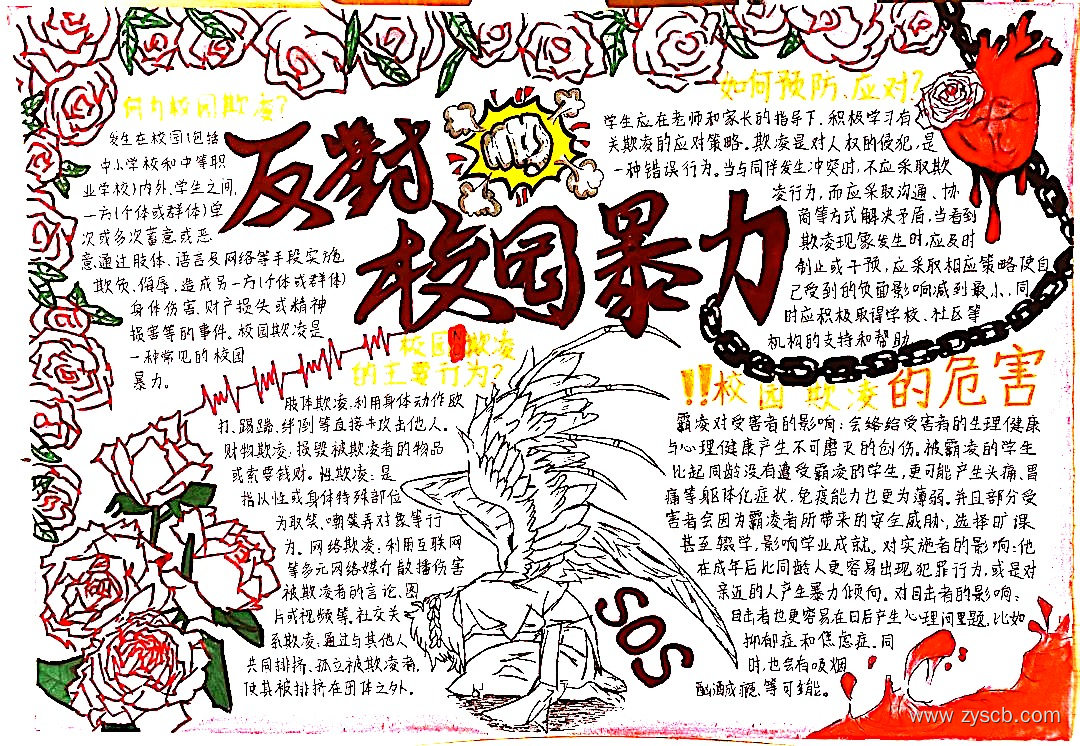 反對
校园暴力
何为校园欺凌?
发生在校园(包括
中小学校和中等职
业学校)内外、学生之间,
一方(个体或群体)单
次或多次蓄意或恶
意通过肢体、语言及网络等手段实施
欺负、侮辱,造成另一方(个体或群体)
身体伤害、财产损失或精神
损害等的事件。校园欺凌是
一种常见的校园
暴力。
如何预防、应对?
学生应在老师和家长的指导下,积极学习有
关欺凌的应对策略。欺凌是对人权的侵犯,是
一种错误行为。当与同伴发生冲突时,不应采取欺
凌行为,而应采取沟通、协
商等方式解决矛盾。当看到
欺凌现象发生时,应及时
制止或干预,应采取相应策略使自
己受到的负面影响减到最小,同
时应积极取得学校、社区等
机构的支持和帮助
校园欺凌
的主要行为?
肢体欺凌:利用身体动作欧
打、踢踏、绊倒等直接卡攻击他人。
财物欺凌:损毁被欺凌者的物品
或索要钱财。性欺凌:是
指以性或身体特殊部位
为取笑、嘲笑弄对象等行
为。网络欺凌:利用互联网
等多元网络媒介散播伤害
被欺凌者的言论、图
片或视频等。社交关
系欺凌:通过与其他人
共同排挤、孤立被欺凌者,
使其被排挤在团体之外。
!!校园欺凌的危害
霸凌对受害者的影响:会络给受害者的生理健康
与心理健康产生不可磨灭的创伤。被霸凌的学生
比起同龄没有遭受霸凌的学生,更可能产生头痛、胃
痛等躯体化症状,免疫能力也更为薄弱。并且部分受
害者会因为霸凌者所带来的安全威胁,选择旷课
甚至辍学,影响学业成就。对实施者的影响:他
在成年后比同龄人更容易出现犯罪行为,或是对
亲近的人产生暴力倾向。对目击者的影响:
目击者也更容易在日后产生心理问题,比如
抑郁症和焦虑症。同
时,也会有吸烟
酗酒成瘾等可能。
SOS
www.zyscb.com